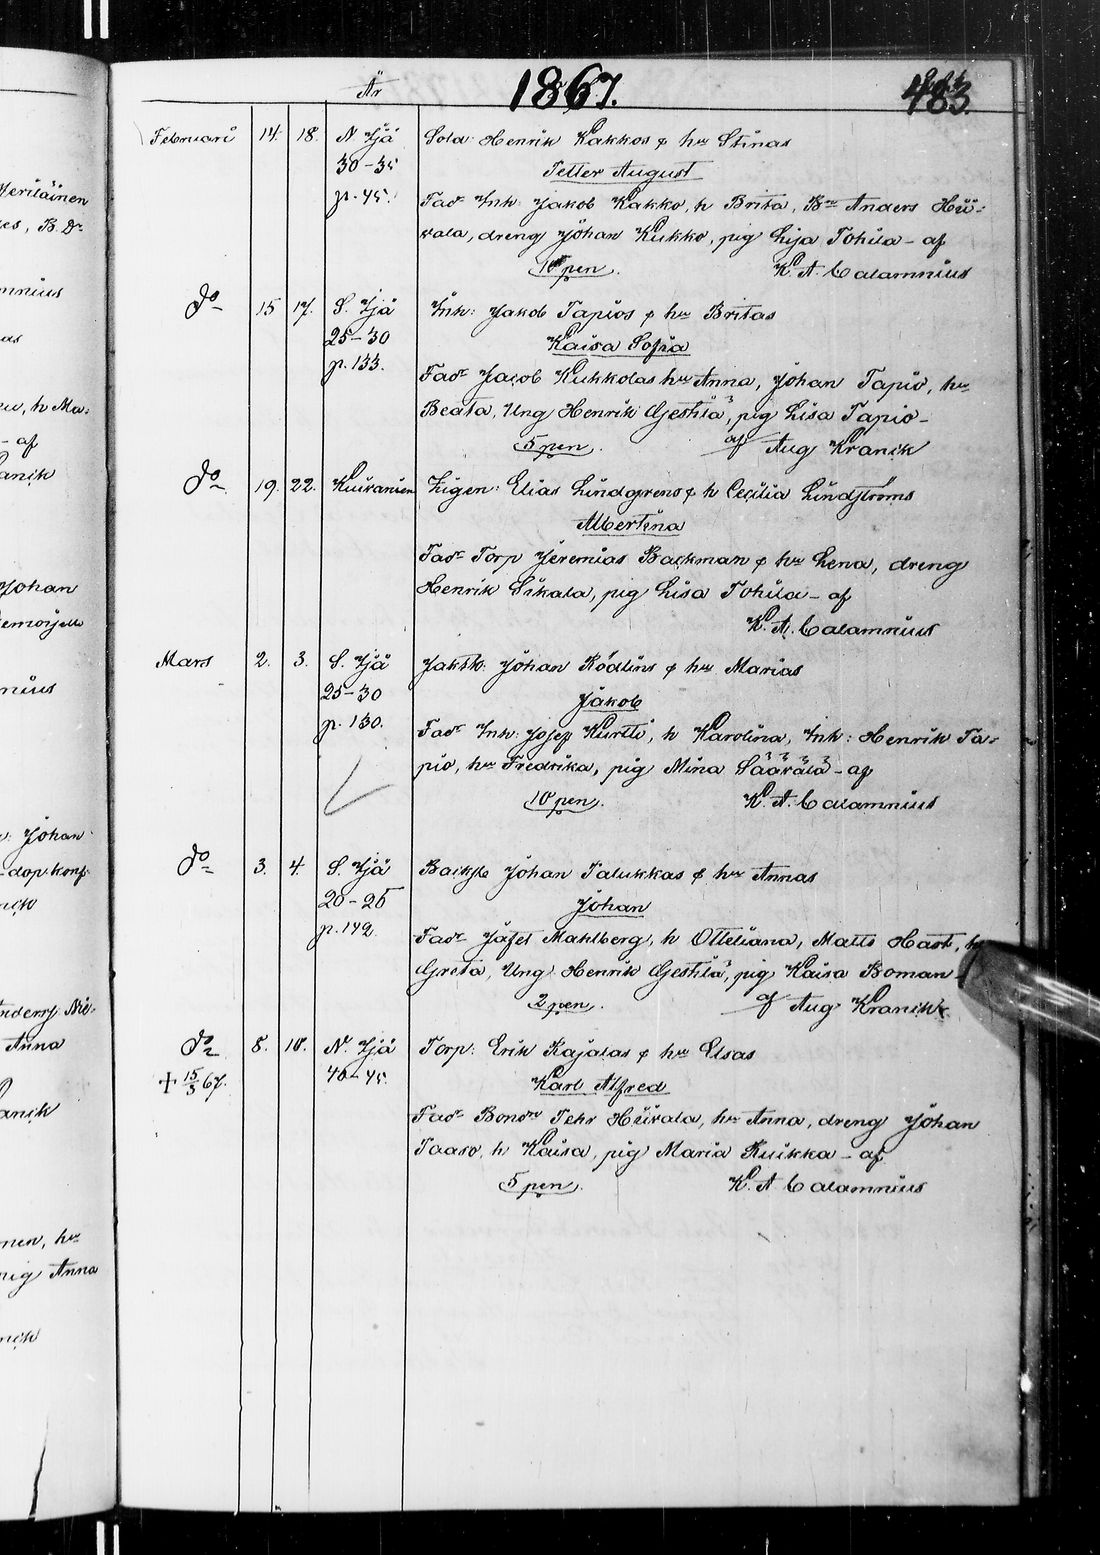 År 1867. 483.
Februari 14. 18. N Ijä Sold: Henrik Kakkos & hu Stinas
30-35 Petter August
p. 45. Fadr Inh: Jakob Kakko, h Brita, Bn Anders Hii-
vala, dreng Johan Kukko, pig Lisa Tohila - af
10 pen. K. A. Calamnius
do 15 17. S. Ijä Inh: Jakob Tapios & hu Britas
25-30 Kaisa Sofia
p. 133. Fadr Jacob Kukkolas hu Anna, Johan Tapio, hu
Beata, Ung Henrik Gestilä, pig Lisa Tapio -
5 pen. af Aug Kranik
do 19. 22. Kuivanien Zigen: Elias Lindgrens & h Cecilia Lindströms
Albertina
Fadr Torp Jeremias Backman & hu Lena, dreng
Henrik Sikala, pig Lisa Tohila - af
K. A. Calamnius
Mars 2. 3. S. Ijä Johan Rödlins & hu Marias
25-30 Jakob
p. 130. Fadr Inh: Josef Kurtti, h Karolina, Inh: Henrik Ta-
pio, hu Fredrika, pig Mina Säärälä - af
10 pen. K. A. Calamnius
do 3. 4. S. Ijä Johan Palukkas & hu Annas
20-25 Johan
p. 142 Fadr Jafet Mahlberg, h Otteliana, Matts Hast, h
Greta, Ung Henrik Gestilä, pig Kaisa Boman -
2 pen. af Aug Kranik
do 8. 10. N. Ijä Torp: Erik Kajalas & hu Elsas
+ 15/3 67. 40-45 Karl Alfred
Fadr Bondn Pehr Hiivala, hu Anna, dreng Johan
Paaso, h Kaisa, pig Maria Kuikka - af
5 pen. K. A Calamnius